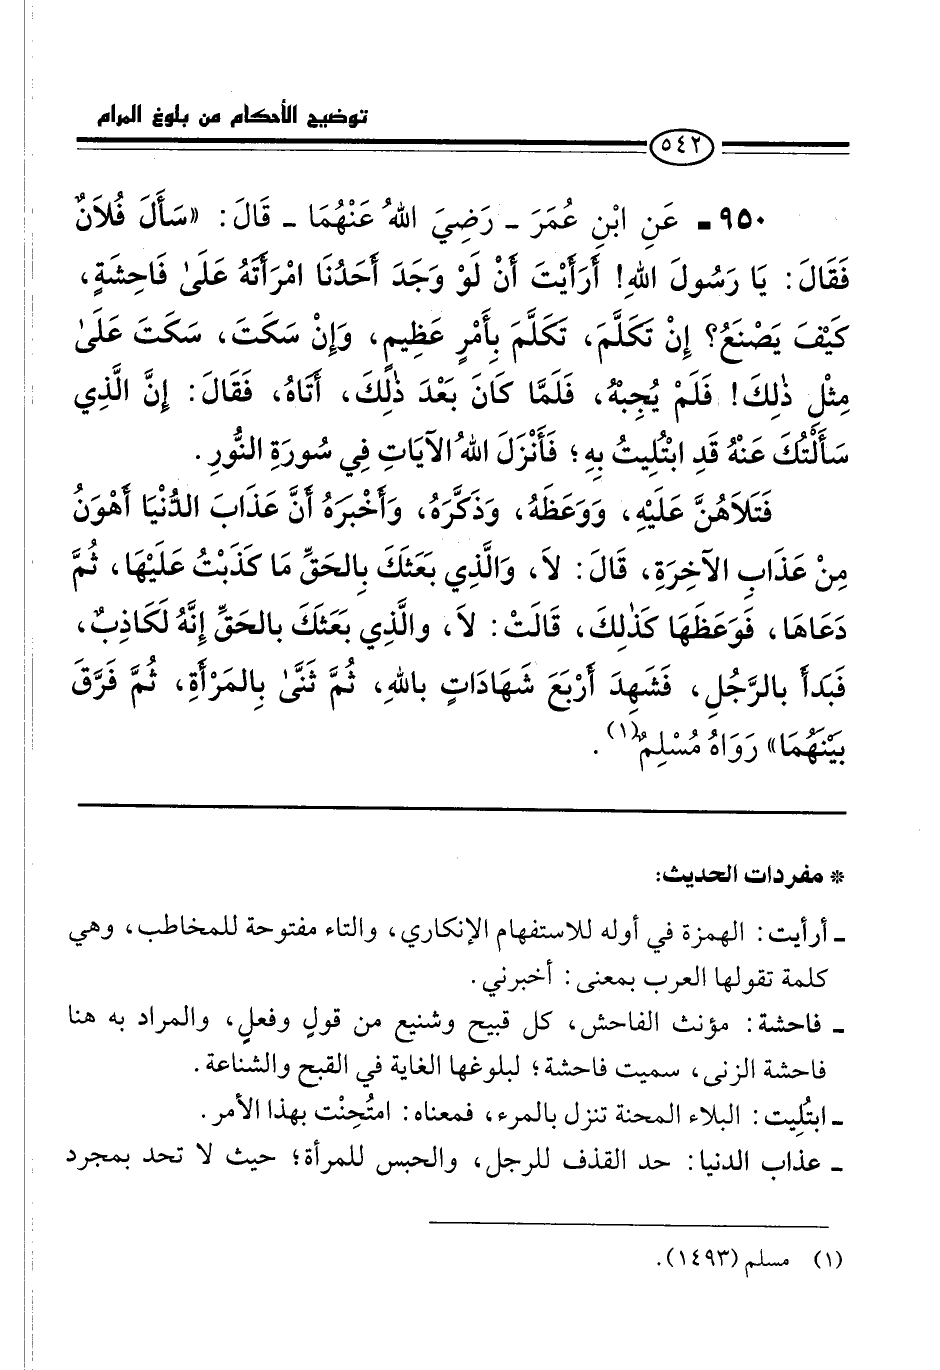 توضيح الأحكام من بلوغ المرام
٥٤٢
٩٥٠ - عَنِ ابْنِ عُمَرَ - رَضِيَ اللهُ عَنْهُمَا - قَالَ: «سَأَلَ فُلاَنٌ
فَقَالَ: يَا رَسُولَ اللهِ! أَرَأَيْتَ أَنْ لَوْ وَجَدَ أَحَدُنَا امْرَأَتَهُ عَلَىٰ فَاحِشَةٍ،
كَيْفَ يَصْنَعُ؟ إِنْ تَكَلَّمَ، تَكَلَّمَ بِأَمْرٍ عَظِيمٍ، وَإِنْ سَكَتَ، سَكَتَ عَلَىٰ
مِثْلِ ذٰلِكَ! فَلَمْ يُجِبْهُ، فَلَمَّا كَانَ بَعْدَ ذٰلِكَ، أَتَاهُ، فَقَالَ: إِنَّ الَّذِي
سَأَلْتُكَ عَنْهُ قَدِ ابْتُلِيتُ بِهِ؛ فَأَنْزَلَ اللهُ الآيَاتِ فِي سُورَةِ النُّورِ.
فَتَلاَهُنَّ عَلَيْهِ، وَوَعَظَهُ، وَذَكَّرَهُ، وَأَخْبَرَهُ أَنَّ عَذَابَ الدُّنْيَا أَهْوَنُ
مِنْ عَذَابِ الآخِرَةِ، قَالَ: لاَ، وَالَّذِي بَعَثَكَ بِالحَقِّ مَا كَذَبْتُ عَلَيْهَا، ثُمَّ
دَعَاهَا، فَوَعَظَهَا كَذٰلِكَ، قَالَتْ: لاَ، والَّذِي بَعَثَكَ بالحَقِّ إِنَّهُ لَكَاذِبٌ،
فَبَدأَ بالرَّجُلِ، فَشَهِدَ أَرْبَعَ شَهَادَاتٍ باللهِ، ثُمَّ ثَنَّىٰ بِالمَرْأَةِ، ثُمَّ فَرَّقَ
بَيْنَهُمَا» رَوَاهُ مُسْلِمٌ(١).
* مفردات الحديث:
- أرأيت: الهمزة في أوله للاستفهام الإنكاري، والتاء مفتوحة للمخاطب، وهي
كلمة تقولها العرب بمعنى: أخبرني.
- فاحشة: مؤنث الفاحش، كل قبيح وشنيع من قولٍ وفعلٍ، والمراد به هنا
فاحشة الزنى، سميت فاحشة؛ لبلوغها الغاية في القبح والشناعة.
- ابتُلِيت: البلاء المحنة تنزل بالمرء، فمعناه: امتُحِنْت بهذا الأمر.
- عذاب الدنيا: حد القذف للرجل، والحبس للمرأة؛ حيث لا تحد بمجرد
(١) مسلم (١٤٩٣).